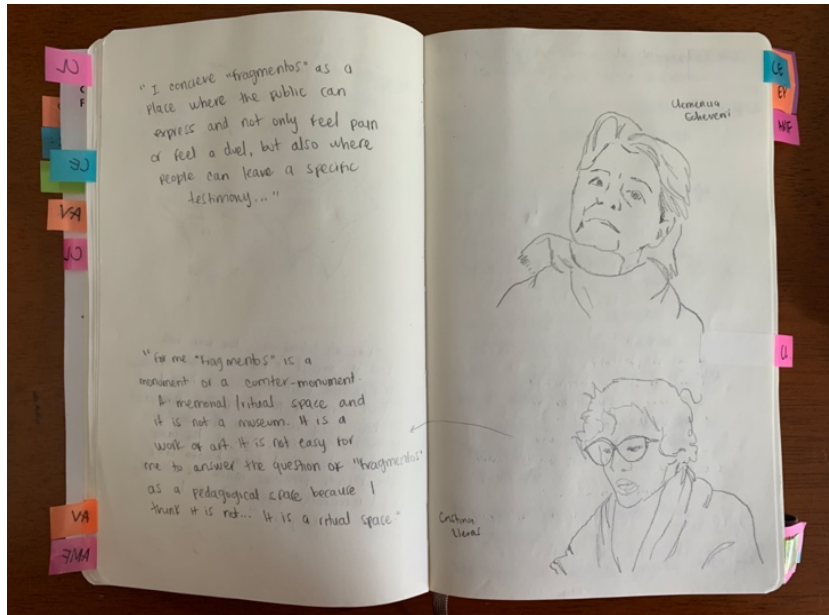 "I concieve "fragmentos" as a
place where the public can
express and not only feel pain
or feel a duel, but also where
people can leave a specific
testimony... "
"For me "fragmentos" is a
monument or a counter-monument.
A memorial/ritual space and
it is not a museum. It is a
work of art. It is not easy for
me to answer the question of "fragmentos"
as a pedagogical space because I
think it is not... It is a ritual space."
Clemencia
Echeverri
Cristina
Lleras
CL
CE
VA
CL
VA
AMF
CE
EY
CL